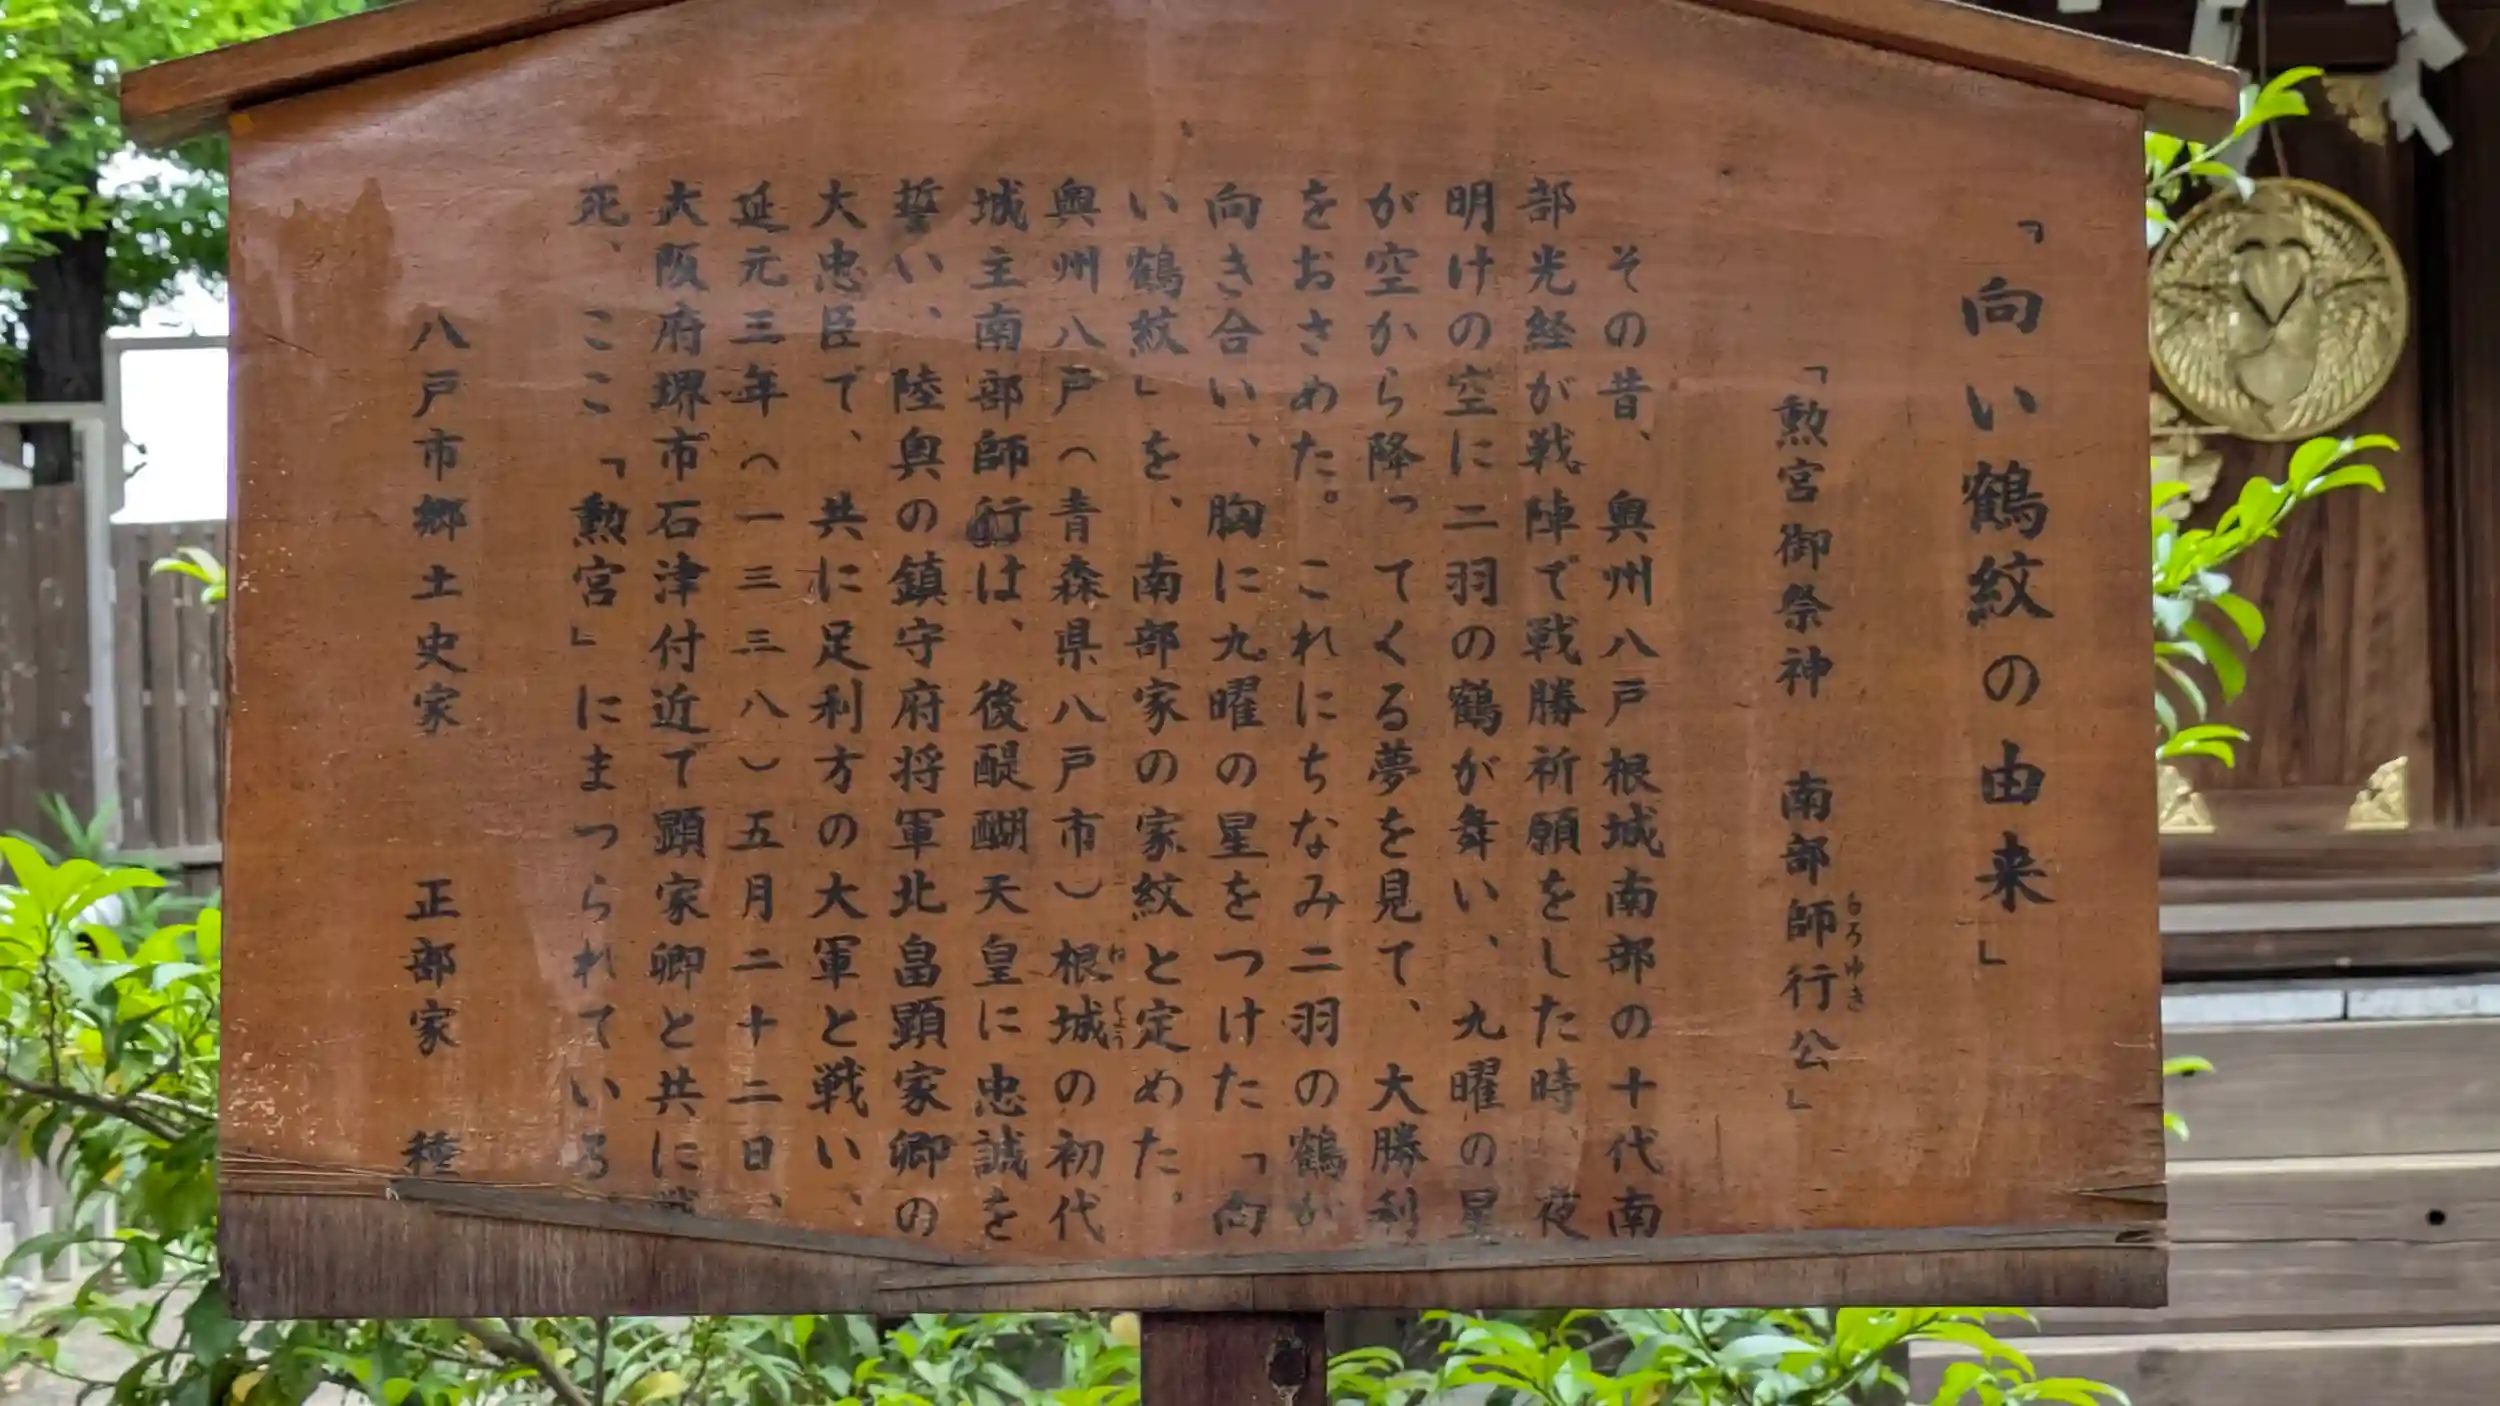 「向い鶴紋の由来」
「勲宮御祭神　南部師行公」
もろゆき
その昔、奥州八戸根城南部の十代南
部光経が戦陣で戦勝祈願をした時、夜
明けの空に二羽の鶴が舞い、九曜の星
が空から降ってくる夢を見て、大勝利
をおさめた。これにちなみ二羽の鶴が
向き合い、胸に九曜の星をつけた「向
い鶴紋」を、南部家の家紋と定めた。
奥州八戸（青森県八戸市）根城の初代
ねじょう
城主南部師行は、後醍醐天皇に忠誠を
誓い、陸奥の鎮守府将軍北畠顕家卿の
大忠臣で、共に足利方の大軍と戦い、
延元三年（一三三八）五月二十二日、
大阪府堺市石津付近で顕家卿と共に戦
死、ここ「勲宮」にまつられている。
八戸市郷土史家　　正部家　種